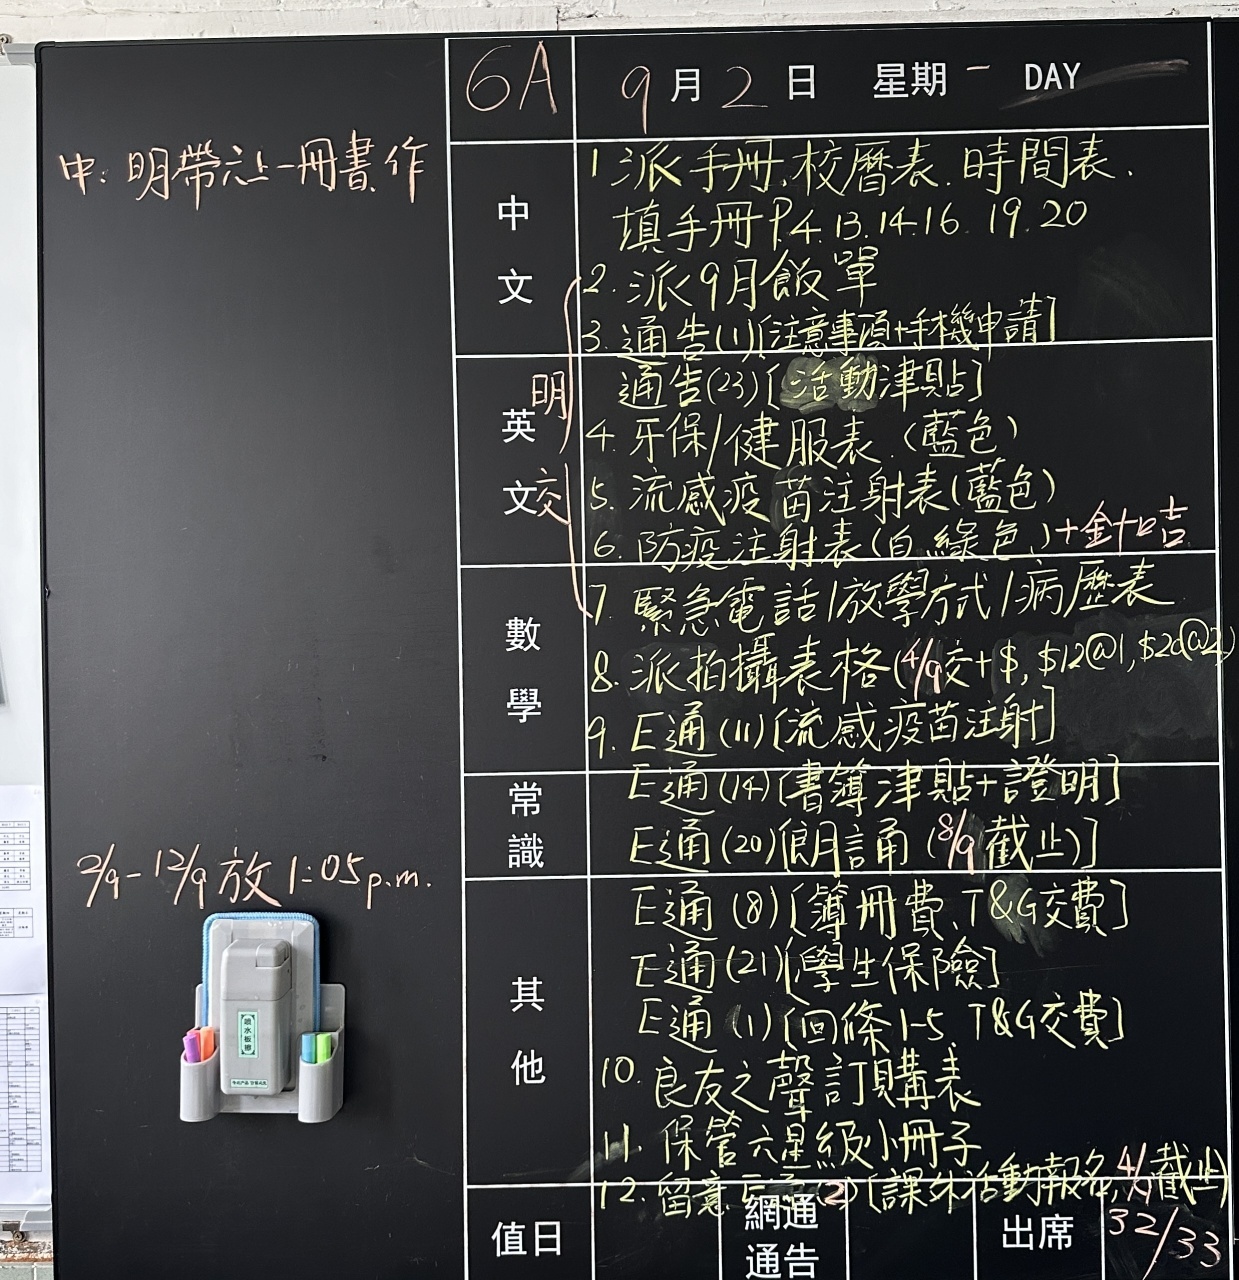 6A
9月2日 星期一 DAY
中: 明帶六上一冊書、作
中文
1 派手冊、校曆表、時間表.
填手冊P.4.13.14.16.19.20
2. 派9月飯單
3. 通告(1)[注意事項+手機申請]
英文
明交
通告(23)[活動津貼]
4. 牙保/健服表(藍色)
5. 流感疫苗注射表(藍色)
6. 防疫注射表(白、綠色)+金十咭
數學
7. 緊急電話/放學方式/病歷表
8. 派拍攝表格(4/9交+$, $12@1, $20@2)
9. E通(11)[流感疫苗注射]
常識
E通(14)[書簿津貼+證明]
E通(20)[朗誦(8/9截止)]
2/9-12/9放1:05p.m.
其他
E通(8)[簿冊費、T&G交費]
E通(21)[學生保險]
E通(1)[回條1-5、T&G交費]
10. 良友之聲訂購表
11. 保管六星級小冊子
12. 留意E通(2)[課外活動報名,4/9截止]
值日
網通
通告
出席
32/33
噴水板擦